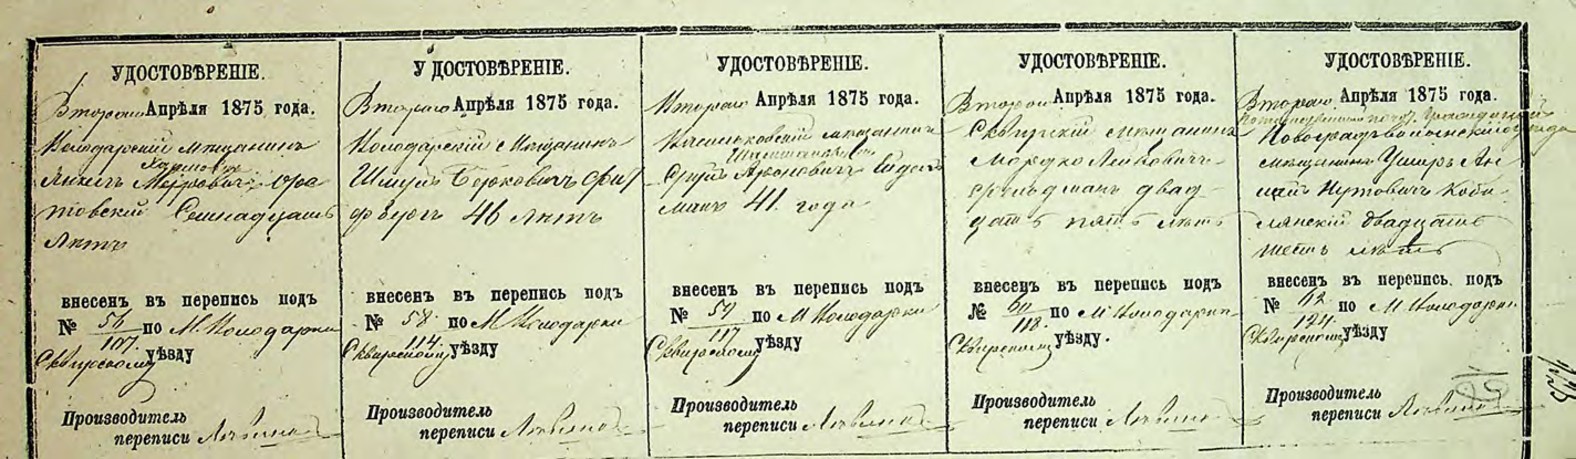 УДОСТОВѢРЕНІЕ.
Втораго Апрѣля 1875 года.
Володарскій мѣщанинъ
Янкель
Семнадцать
Лѣтъ
внесенъ въ перепись подъ
№ 56/107. по М. Володарки
Сквирскому уѣзду
Производитель
переписи
У ДОСТОВѢРЕНІЕ.
Втораго Апрѣля 1875 года.
Володарскій Мѣщанинъ
Шмуль Берковичъ
46 лѣтъ
внесенъ въ перепись подъ
№ 58/114. по М. Володарки
Сквирскому уѣзду
Производитель
переписи
УДОСТОВѢРЕНІЕ.
Втораго Апрѣля 1875 года.
Васильковскій мѣщанинъ
Сруль Ароновичъ
манъ 41. года
внесенъ въ перепись подъ
№ 59/117 по М Володарки
Сквирскому уѣзду
Производитель
переписи
УДОСТОВѢРЕНІЕ.
Втораго Апрѣля 1875 года.
Сквирскій мѣщанинъ
Мордко Лейбовичъ
Фельдманъ двад
цать пять лѣтъ
внесенъ въ перепись подъ
№ 60/118. по М Володарки
Сквирскому уѣзду.
Производитель
переписи
УДОСТОВѢРЕНІЕ.
Втораго Апрѣля 1875 года.
Новоградволынскаго уѣзда
мѣщанинъ Ушеръ Ан
Нутовичъ Кобы
лянскій двадцать
шесть лѣтъ
внесенъ въ перепись подъ
№ 62/124. по М Володарки
Сквирскому уѣзду
Производитель
переписи